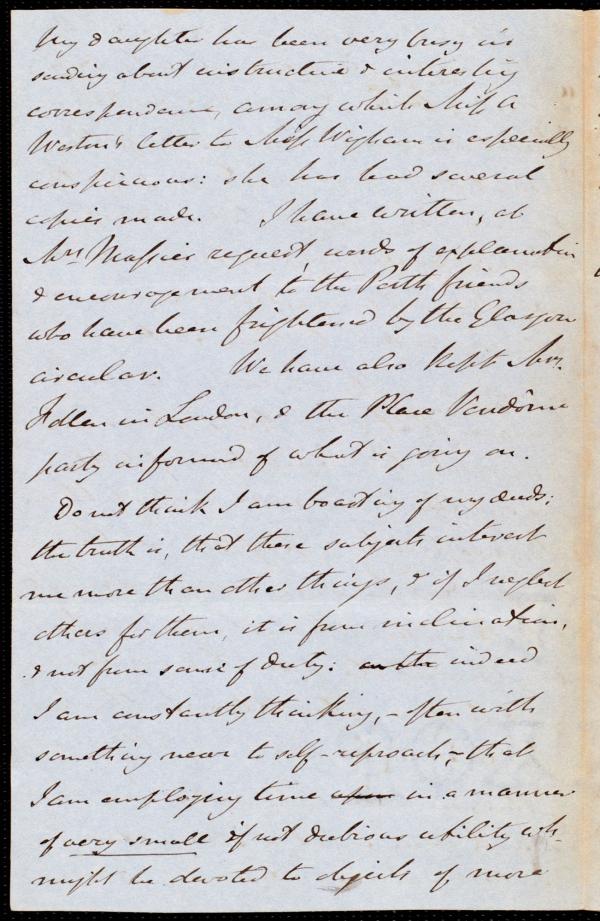 My daughter has been very busy in
sending about instructive & interesting
correspondence, among which Miss A
Weston's letter to Miss Wigham is especially
conspicuous: she has had several
copies made. I have written, at
Mrs Massie's request, words of explanation
& encouragement to the Perth friends
who have been frightened by the Glasgow
circular. We have also kept Mrs.
Follen in London, & the Place Vendôme
party informed of what is going on.
Do not think I am boasting of my deeds:
the truth is, that these subjects interest
me more than other things, & if I neglect
others for them, it is from inclination,
& not from sense of duty: indeed
I am constantly thinking, - often with
something near to self-reproach, - that
I am employing time upon in a manner
of very small if not dubious utility wh.
might be devoted to objects of more